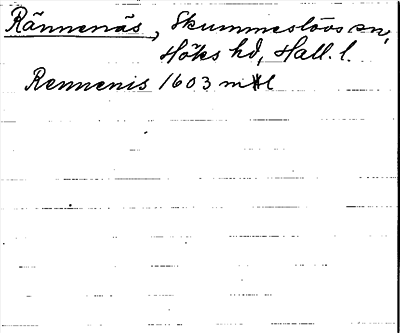 Rännenäs, Skummeslövs sn,
Höks hd, Hall. l.
Rennenis 1603 mtl